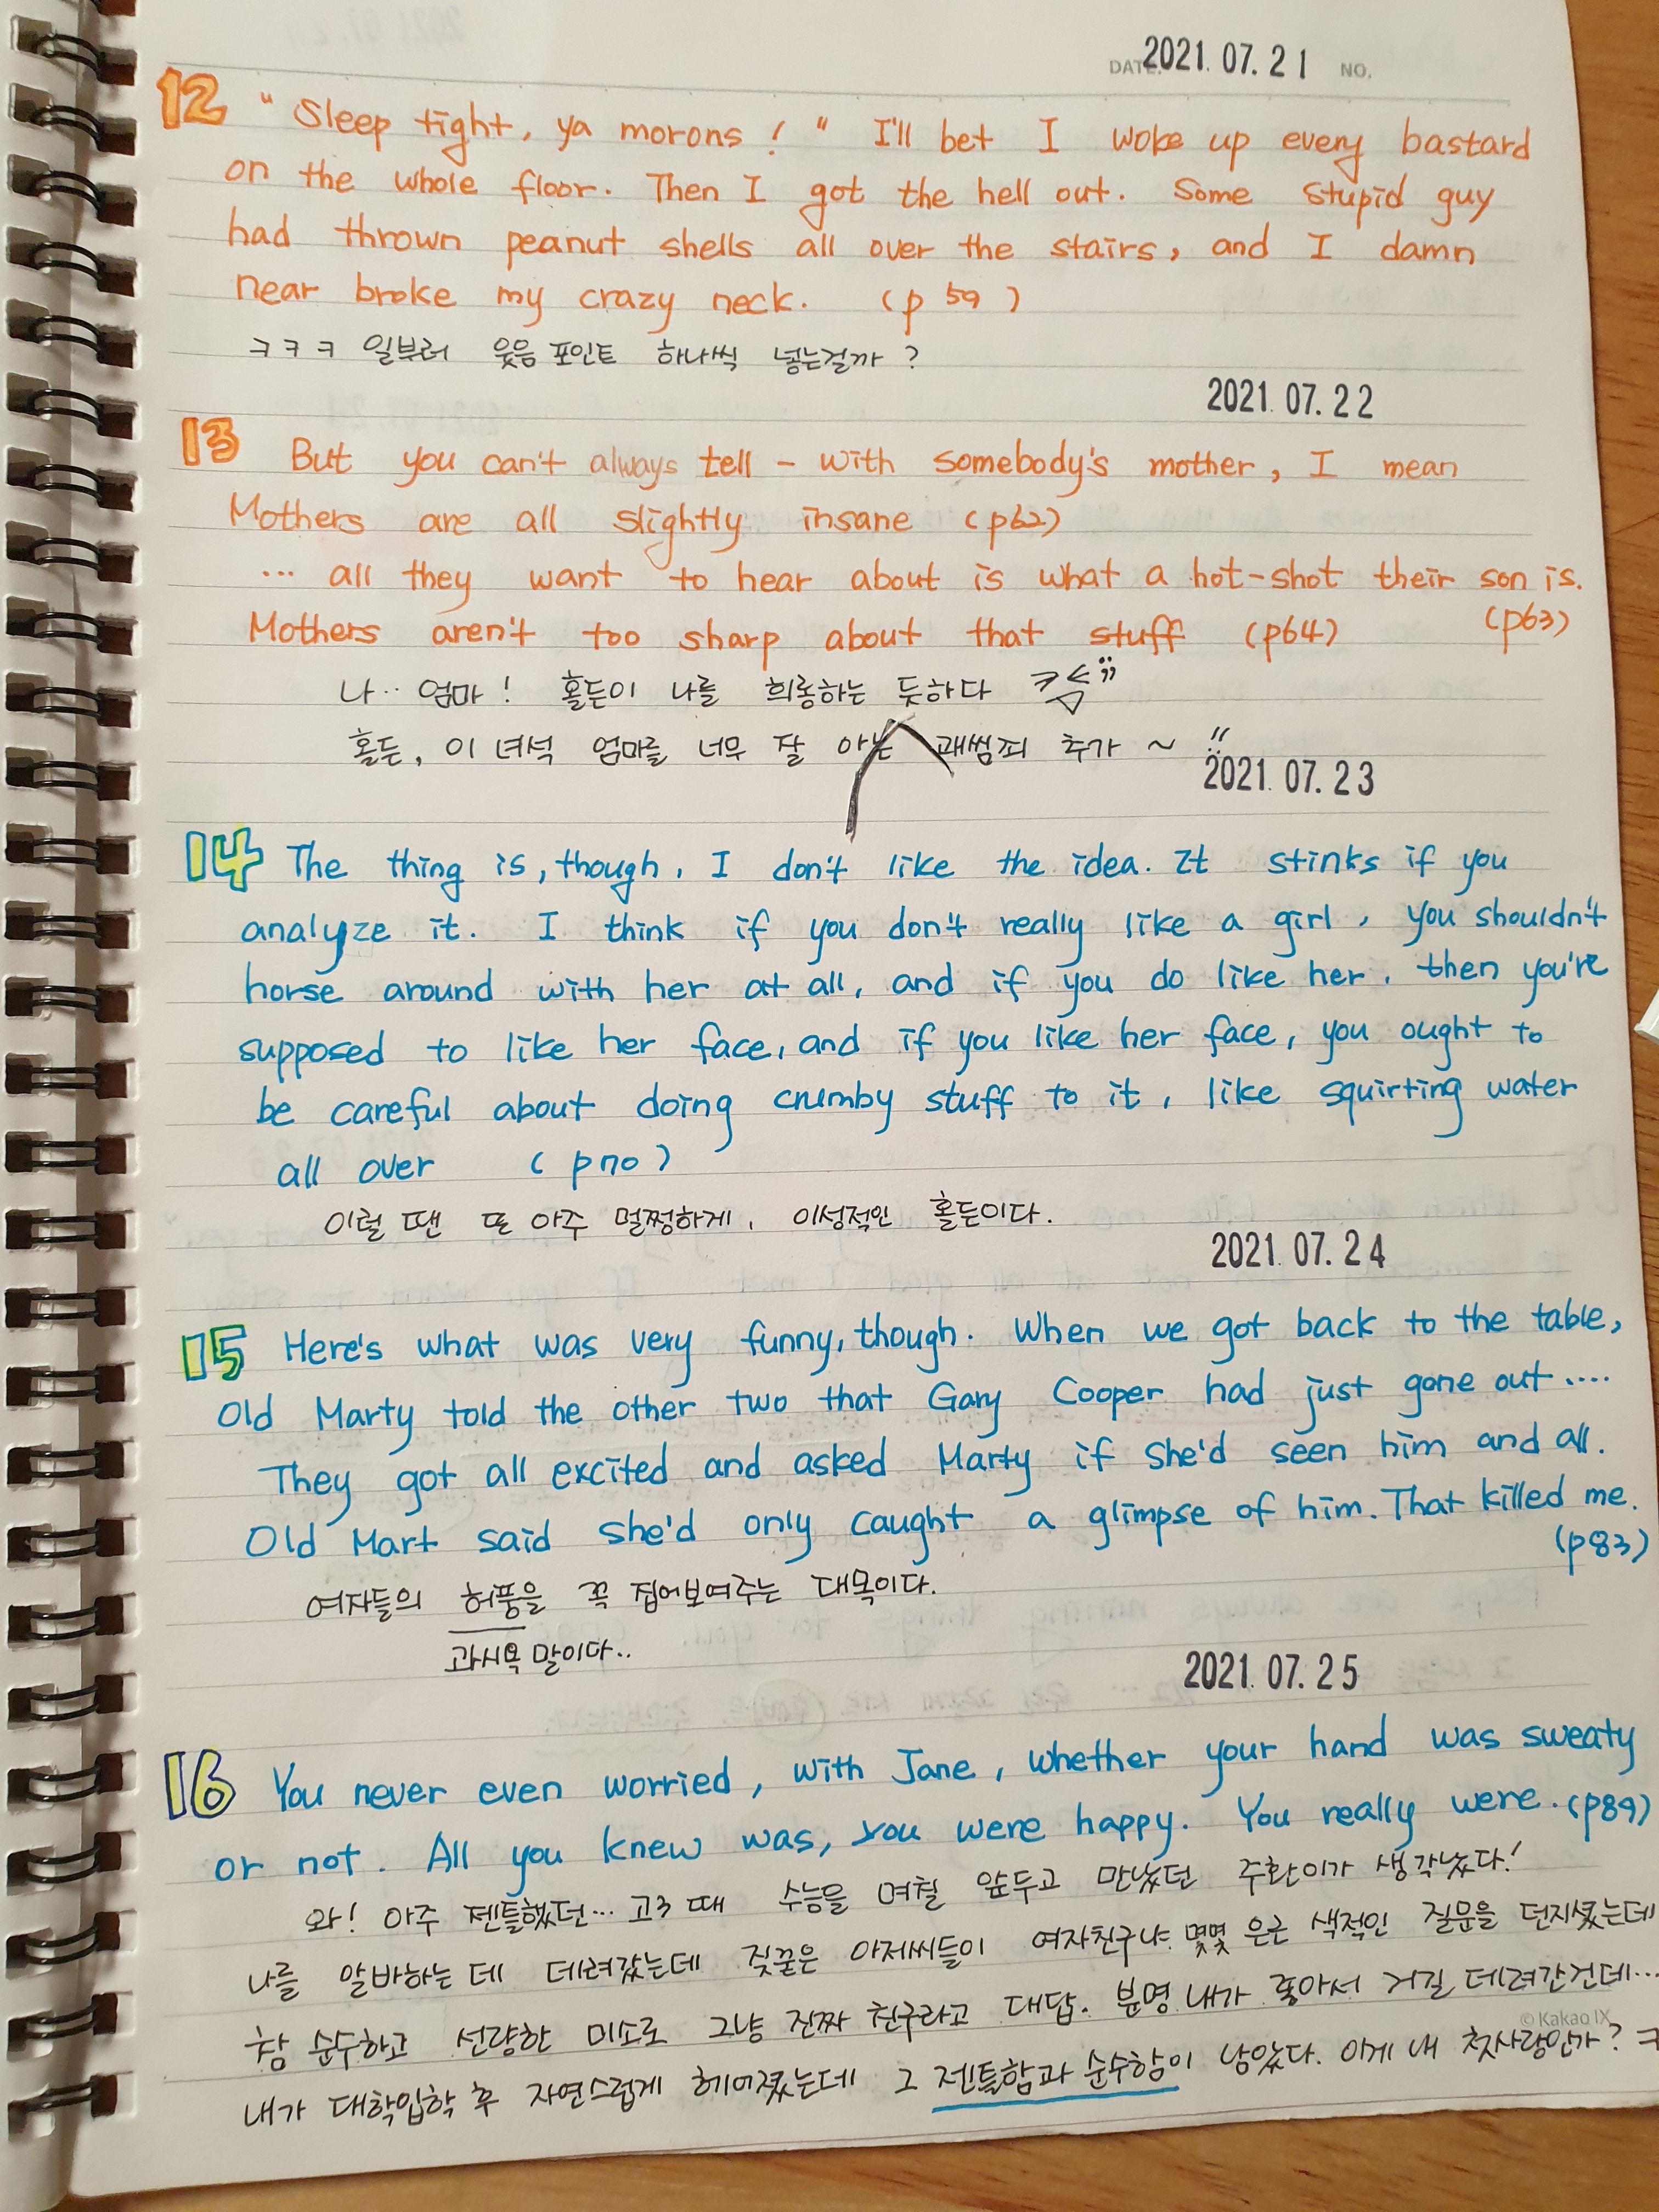 DATE. 2021. 07. 21 NO.
12 "Sleep tight, ya morons! " I'll bet I woke up every bastard
on the whole floor. Then I got the hell out. Some stupid guy
had thrown peanut shells all over the stairs, and I damn
near broke my crazy neck. (p 59)
ㅋㅋㅋ 일부러 웃음 포인트 하나씩 넣는걸까?
2021. 07. 22
13 But you can't always tell - with somebody's mother, I mean
Mothers are all slightly insane (p62)
... all they want to hear about is what a hot-shot their son is.
(p63)
Mothers aren't too sharp about that stuff (p64)
나.. 엄마! 홀든이 나를 희롱하는 듯하다
홀든, 이 녀석 엄마를 너무 잘 아는 괘씸피 추가 ~ !!
2021. 07. 23
14 The thing is, though, I don't like the idea. It stinks if you
analyze it. I think if you don't really like a girl, you shouldn't
horse around with her at all, and if you do like her, then you're
supposed to like her face, and if you like her face, you ought to
be careful about doing crumby stuff to it, like squirting water
all over (p70)
이럴 땐 또 아주 멀쩡하게, 이성적인 홀든이다.
2021. 07. 24
15 Here's what was very funny, though. When we got back to the table,
Old Marty told the other two that Gary Cooper had just gone out....
They got all excited and asked Marty if she'd seen him and all.
Old Mart said she'd only caught a glimpse of him. That killed me.
(p83)
여자들의 허풍을 꼭 집어보여주는 대목이다.
과시욕 말이다..
2021. 07. 25
16 You never even worried, with Jane, whether your hand was sweaty
or not. All you knew was, you were happy. You really were. (p89)
와! 아주 젠틀했던... 고3 때 수능을 며칠 앞두고 만났던 주환이가 생각났다!
나를 알바하는 데 데려갔는데 짖꿎은 아저씨들이 여자친구냐. 몇몇 은근 색적인 질문을 던지셨는데
참 순수하고 선량한 미소로 그냥 진짜 친구라고 대답. 분명 내가 좋아서 거길 데려간건데...
© Kakao IX
내가 대학입학 후 자연스럽게 헤어졌는데 그 젠틀함과 순수함이 남았다. 이게 내 첫사랑인가? ㅋ